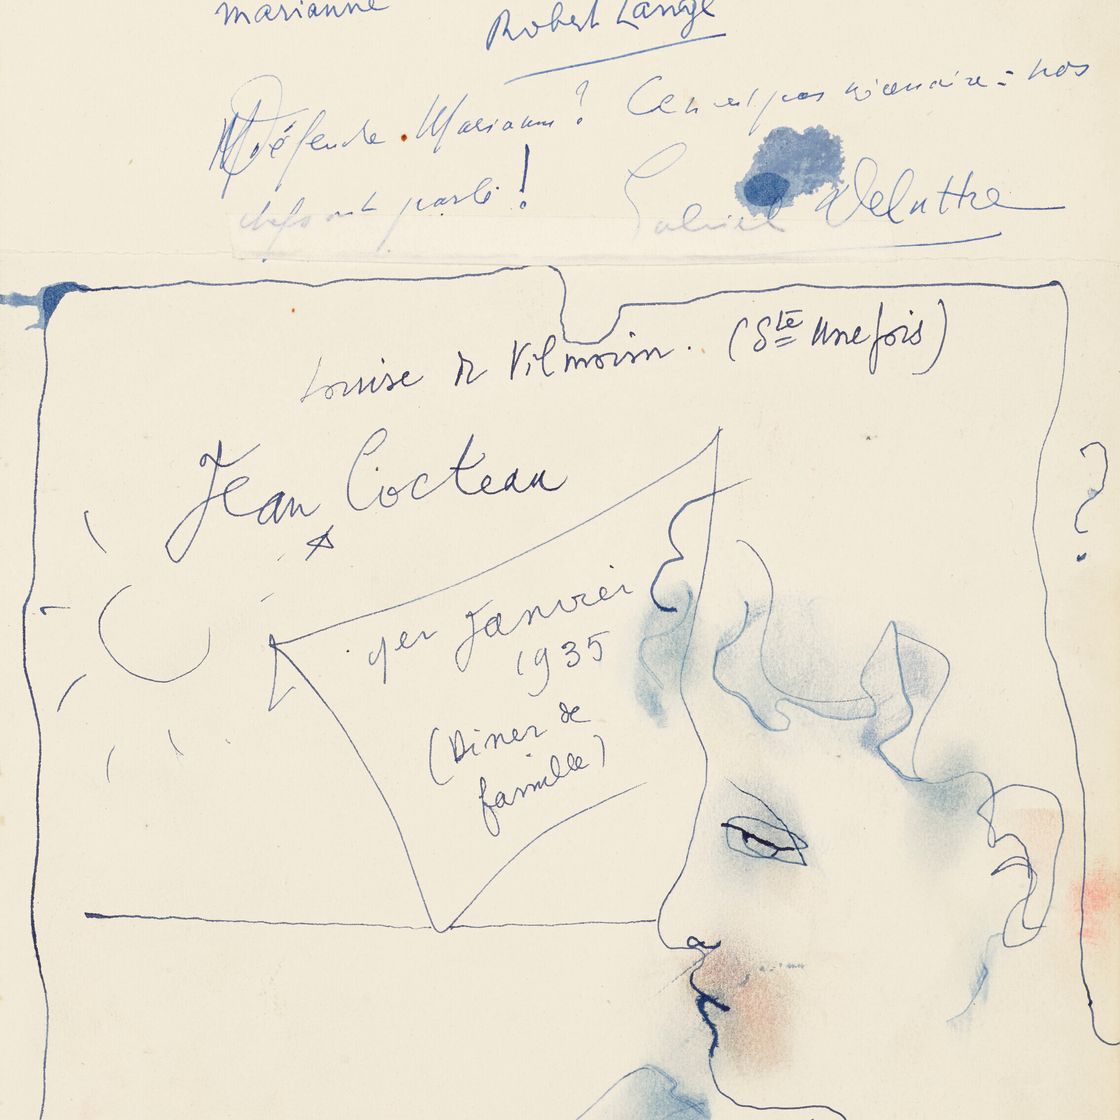 marianne
Robert Lange
Défendre Marianne? Ce n'est pas nécessaire : nos
chefs ont parlé !
Gabriel Delattre
Louise de Vilmorin. (Ste Unefois)
Jean Cocteau
1er Janvier
1935
(Diner de
famille)
?